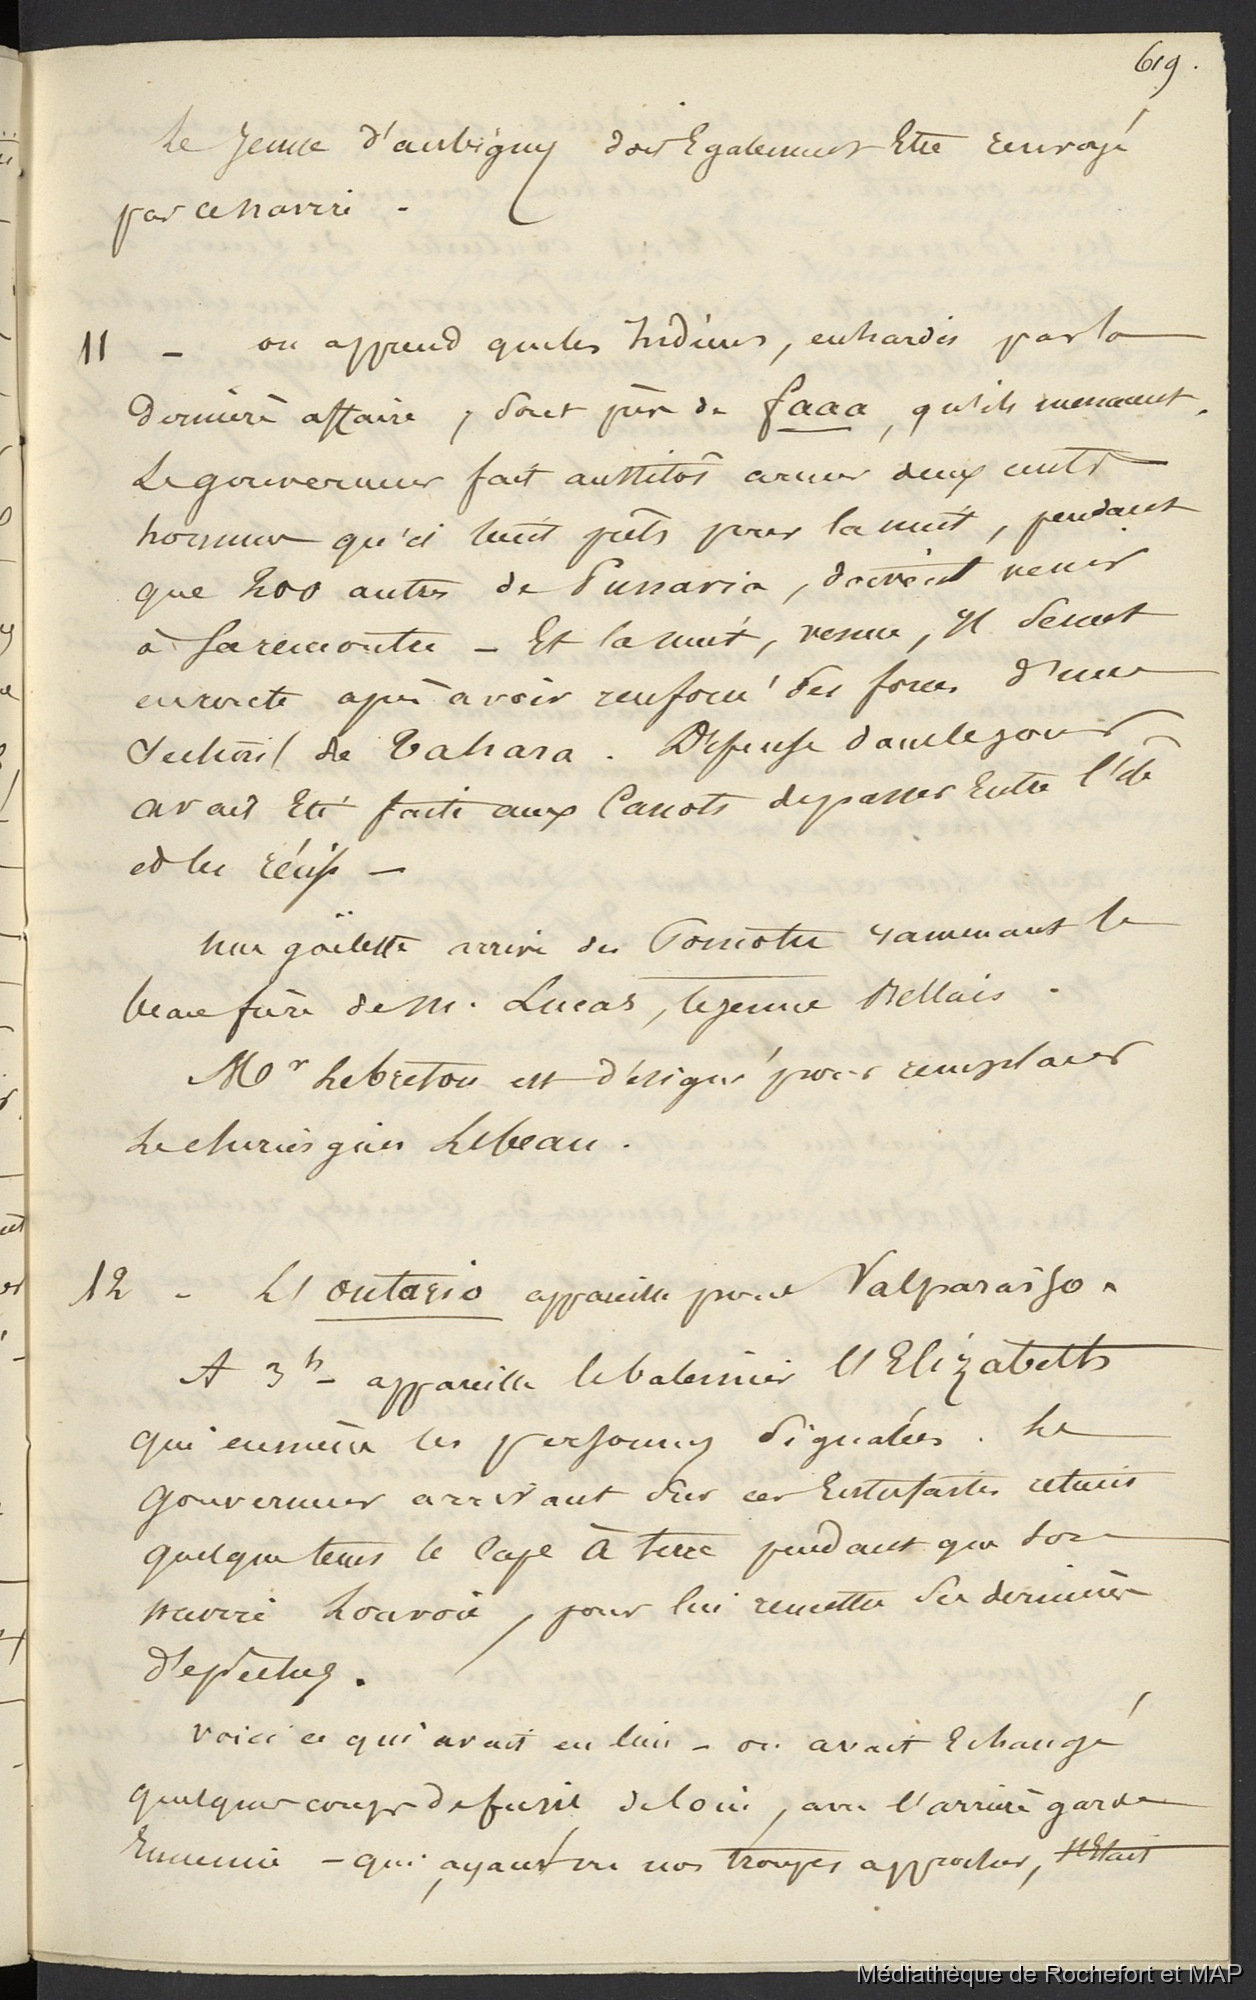 619.
Le Jeune d'aubigny doit Egalement Etre renvoyé
par ce navire -
11 - on apprend que les Indiens, enhardis par la
dernière affaire, sont près de faaa, qu'ils menacent.
Le gouverneur fait aussitôt armer deux cents
hommes qu'il tient prêts pour la nuit, pendant
que 200 autres de Punavia, doivent venir
à sa rencontre - Et la nuit, venue, Il se met
en route après avoir renforcé ses forces d'une
de Vahara. Défense dans le jour
avait Eté faite aux Canots de passer Entre l'île
et les récifs -
Une goëlette arrive des Pomotu ramenant le
beau frère de M. Lucas, le jeune Bellais.
Mr Lebreton est désigné pour remplacer
Le chirurgien Lebeau.
12 - L'ontario appareille pour Valparaiso.
A 3h - appareille le baleinier l'Elizabeth
qui emmène les personnes signalées. Le
Gouverneur arrivant sur ces Entrefaites retient
quelque tems le Cape à terre pendant que son
navire louvoie, pour lui remettre ses dernières
dépêches.
voici ce qui avait eu lieu - on avait Echangé
quelques coups de fusil de loin, avec l'arrière garde
Ennemie - qui, ayant vu nos troupes approcher, s'Etait
Médiathèque de Rochefort et MAP